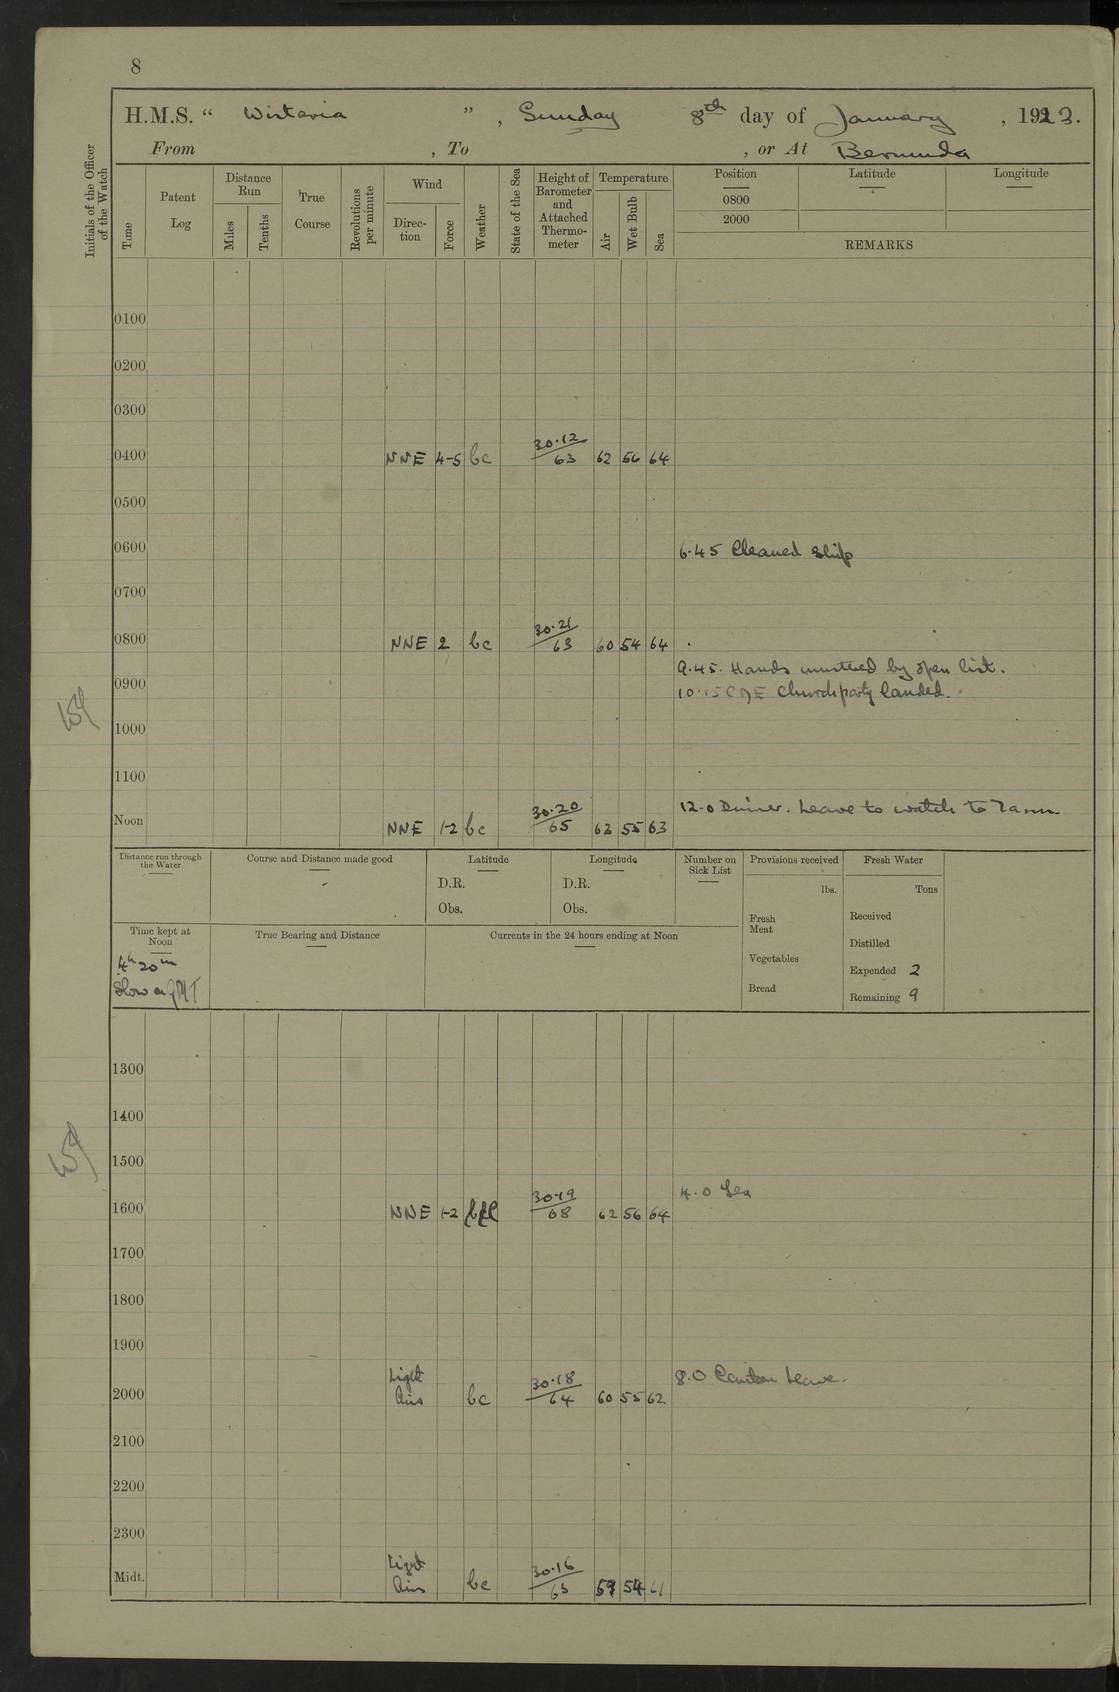 8
H.M.S. “ Wistaria ” , Sunday 8th day of January , 1922.
From , To , or At Bermuda
Initials of the Officer of the Watch
Time
Patent Log
Distance Run
Miles
Tenths
True Course
Revolutions per minute
Wind
Direc- tion
Force
Weather
State of the Sea
Height of Barometer and Attached Thermo- meter
Temperature
Air
Wet Bulb
Sea
Position
Latitude
Longitude
0800
2000
REMARKS
0100
0200
0300
0400 NNE 4-5 bc 30.12/63 62 56 64
0500
0600 6.45 Cleaned ship
0700
0800 NNE 2 bc 30.21/63 60 54 64
9.45. Hands mustered by open list.
0900 10.15 C of E Church party landed.
1000
1100
12.0 Dinner. Leave to watch to 7 a.m.
Noon NNE 1-2 bc 30.20/65 63 55 63
Distance run through the Water
Course and Distance made good
Latitude
D.R.
Obs.
Longitude
D.R.
Obs.
Number on Sick List
Provisions received
lbs.
Fresh Meat
Vegetables
Bread
Fresh Water
Tons
Received
Distilled
Expended 2
Remaining 9
Time kept at Noon
4h 20m
Slow on GMT
True Bearing and Distance
Currents in the 24 hours ending at Noon
1300
1400
1500
4.0 Tea
1600 NNE 1-2 30.19/68 62 56 64
1700
1800
1900
8.0 Canteen Leave.
2000 Light Airs bc 30.18/64 60 55 62
2100
2200
2300
Midt. Light Airs bc 30.16/63 59 54 61